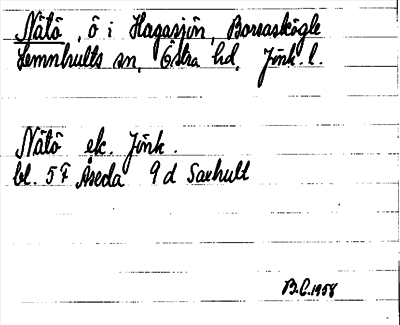 Nätö, ö i Hagasjön, Borsaskögle
Lemnhults sn, Östra hd, Jönk. l.
Nätö ek. Jönk.
bl. 5F Åseda 9d Saxhult
B.C. 1958